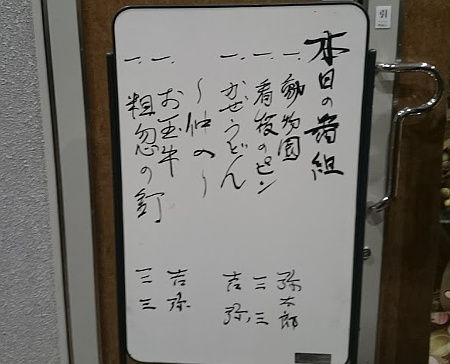 本日の番組
一、動物園 弥太郎
一、看板のピン 三三
一、かぜうどん 吉弥
〜仲入〜
一、お玉牛 吉弥
一、粗忽の釘 三三
引